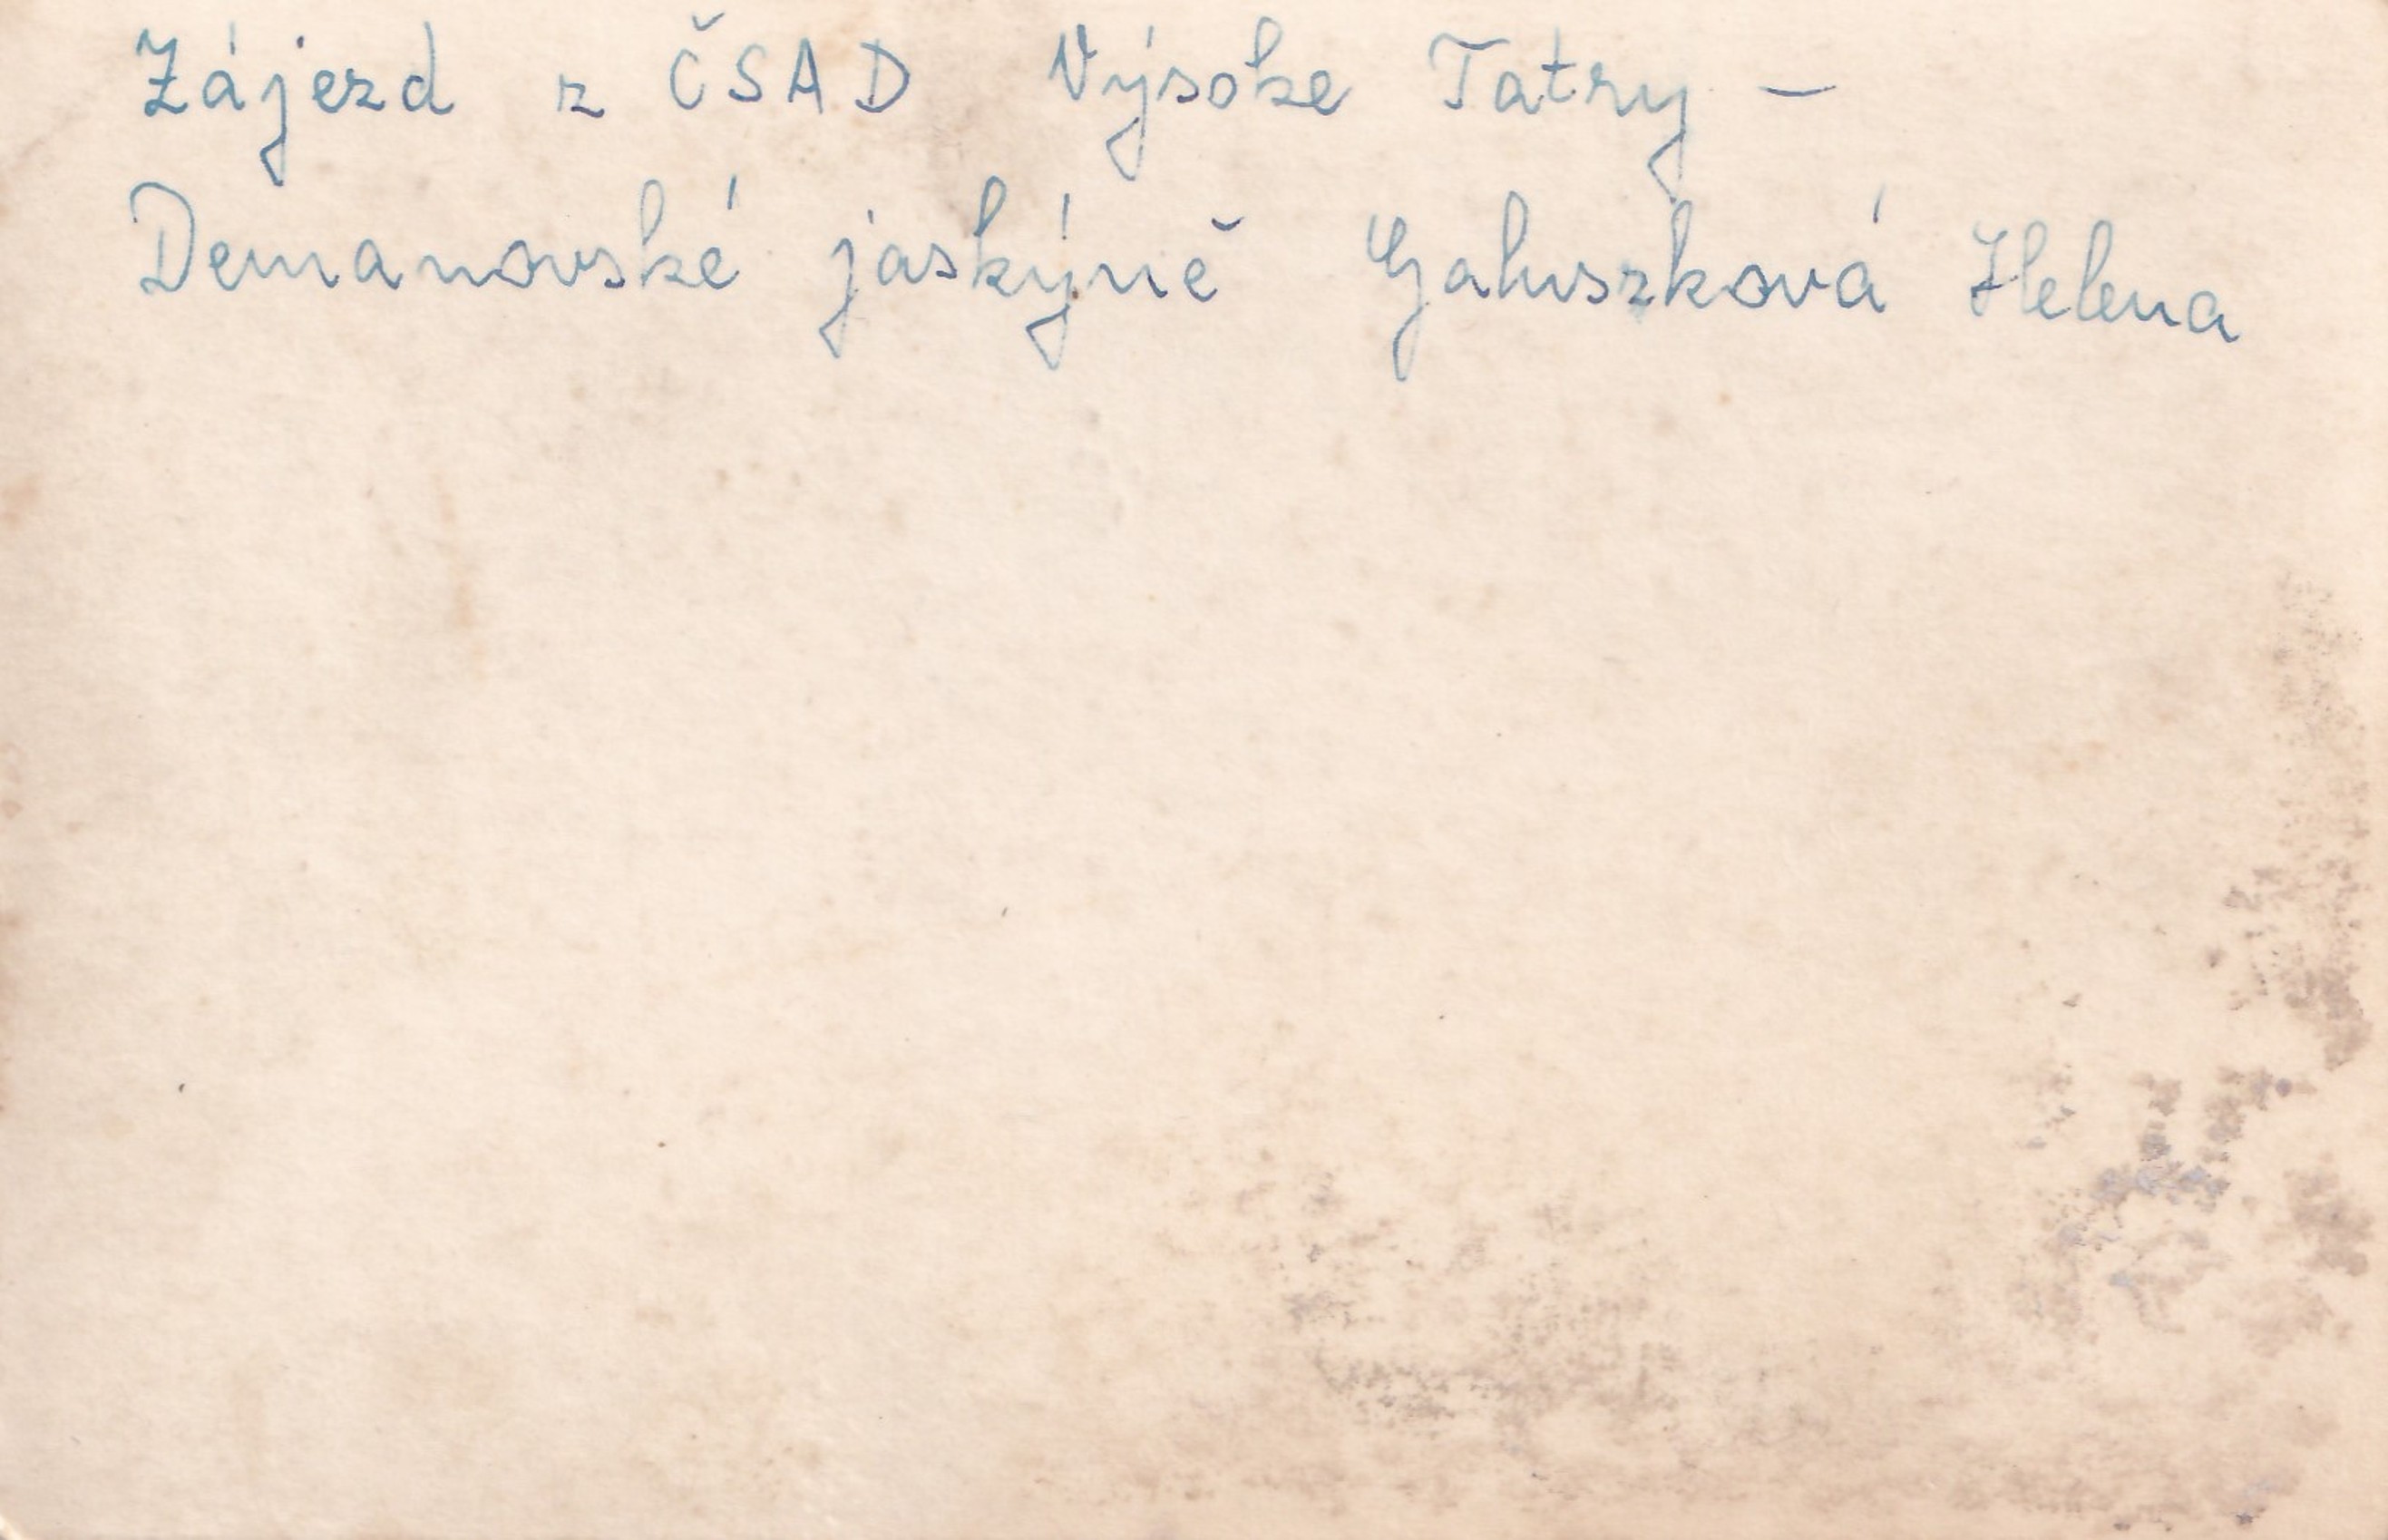 Zájezd z ČSAD Výsoke Tatry –
Demanovské jaskýně Galuszková Helena